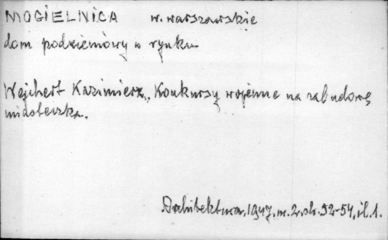 MOGIELNICA w. warszawskie
dom podcieniowy w rynku
Wejchert Kazimierz, Konkursy wojenne na zabudowę
miasteczka.
Architektura, 1947, nr. 2, str. 52-54, il. 1.